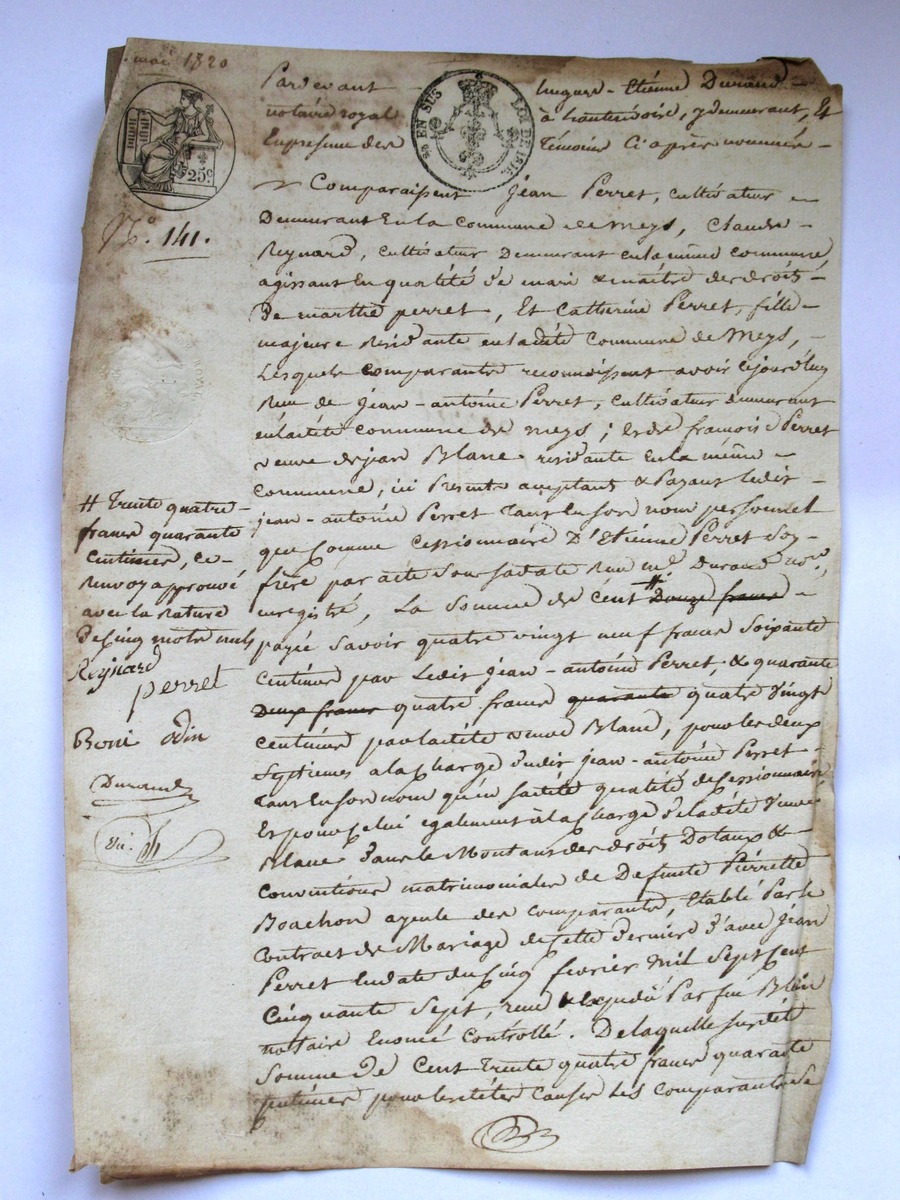 mai 1820
25c.
EN SUS
LOI DE 1816
No. 141.
Pardevant hugues - Etiénne Durand -
notaire royal à hauterivoire, y demeurant, Et
En presence des Témoins Ci après nommés -
Comparaissent Jéan Perret, cultivateur
Demeurant En la Commune de meys, Claude -
Reynard, cultivateur Demeurant en la même commune,
agissant En qualité de mari & maître des droits -
De marthe perret, Et Catherine Perret, fille -
majeure Residante en ladite Commune de Meys, -
Lesquels comparants reconnaissent avoir cejourd'huy
Reçu de Jéan - antoine Perret, cultivateur demeurant
en ladite commune de meys ; et de francoise Perret
veuve de jean Blanc residante En la même -
Commune, ici Presents acceptant & Payant ledit
jean - antoine Perret tant En son nom personnel
que Comme Cessionnaire D'Etiénne Perret son
frère par acte sous sa date Reçu me. Durand nore.,
enregistré, La Somme de Cent # Douze francs -
payée Savoir quatre vingt neuf francs Soixante
Centimes par Ledit Jéan - antoine Perret, & quarante
Deux francs quatre francs quarante quatre Vingt
Centimes par ladite veuve Blanc, pour les deux
Septiemes a la Charge dudit jean - antoine Perret -
tant En son nom qu'en sadite qualité de Cessionnaire
Et pour Celui egalement à la Charge de ladite Veuve
Blanc dans le Montant des droits Dotaux & -
Conventions matrimoniales de Defunte Pierrette
Boachon ayeule des comparants, Etablé Par le
Contract de Mariage de Cette derniere d'avec Jéan
Perret En date du Cinq fevrier Mil Sept Cent
Cinquante Sept, reçu & expedié Par feu Blein
notaire Enoncé Controllé. De laquelle susdite
Somme de Cent trente quatre francs quarante
Centimes pour les dites Causes Les Comparants Se
# Trente quatre -
francs quarante
Centimes, Ce
Renvoy approuvé
avec la rature
De Cinq mots nuls
Reynard
perret
Boni Odin
Durand